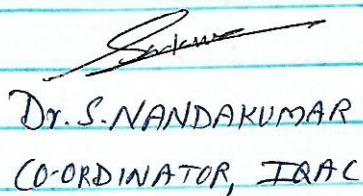 Dr. S. NANDAKUMAR
CO-ORDINATOR, IQAC